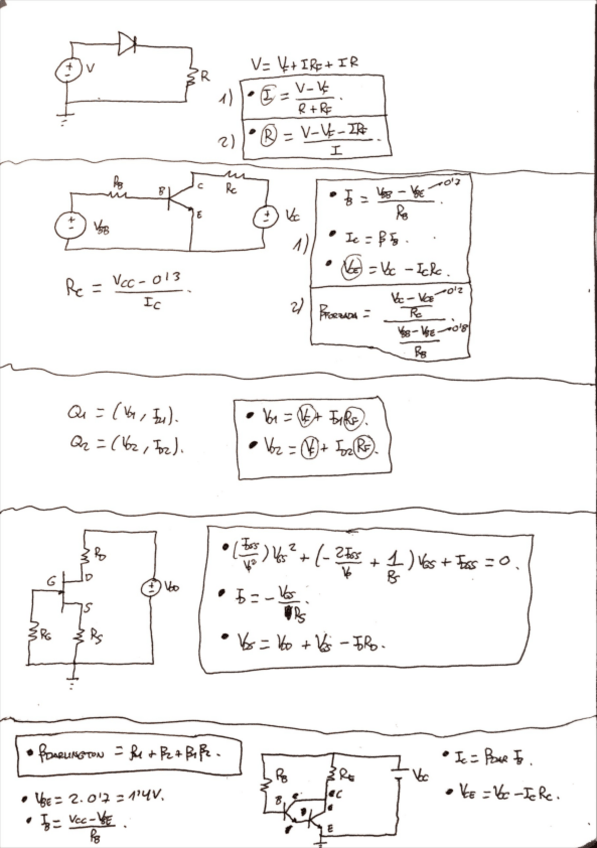 V
R
V = Vf + IRf + IR
1) • I = (V - Vf) / (R + Rf).
2) • R = (V - Vf - IRf) / I
RB
B
C
E
RC
VBB
VCC
RC = (VCC - 0'3) / IC.
1) • IB = (VBB - VBE → 0'7) / RB
• IC = β IB.
• VCE = VCC - ICRC.
2) βFORZADA = ((VCC - VCE → 0'2) / RC) / ((VBB - VBE → 0'8) / RB).
Q1 = (VD1, ID1).
Q2 = (VD2, ID2).
• VD1 = Vf + ID1 Rf.
• VD2 = Vf + ID2 Rf.
RD
G
D
S
VDD
RG
RS
• (IDSS / VP²) VGS² + (- 2IDSS / VP + 1 / RS) VGS + IDSS = 0.
• ID = - VGS / RS.
• VDS = VDD + VGS - IDRD.
• βDARLINGTON = β1 + β2 + β1 β2.
• VBE = 2·0'7 = 1'4V.
• IB = (VCC - VBE) / RB.
RB
B
C
E
VCC
• IC = βDAR IB.
• VCE = VCC - IC RC.